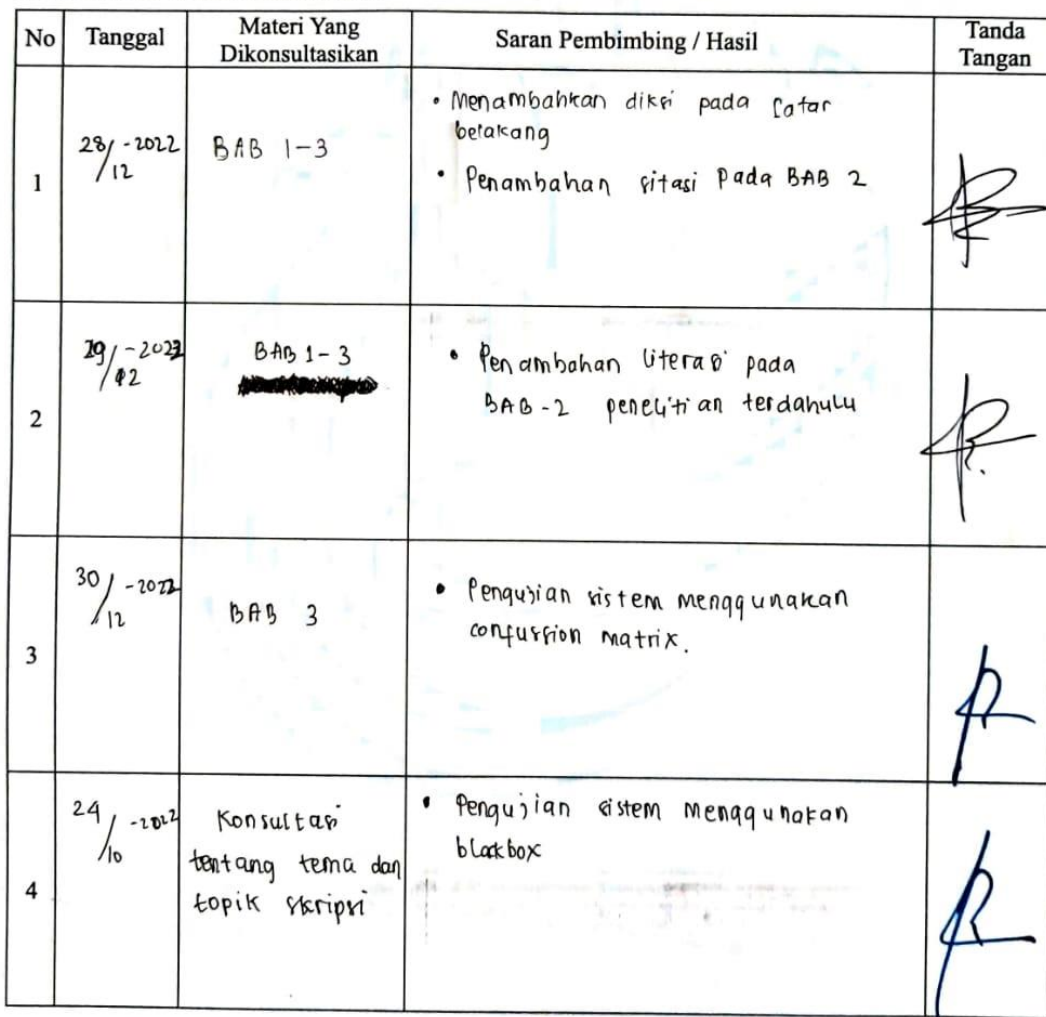 No Tanggal Materi Yang Dikonsultasikan Saran Pembimbing / Hasil Tanda Tangan
1
28/12-2022
BAB 1-3
• Menambahkan diksi pada Latar
belakang
• Penambahan sitasi Pada BAB 2
2
29/12-2022
BAB 1-3
• Penambahan literasi pada
BAB-2 penelitian terdahulu
3
30/12-2022
BAB 3
• Pengujian sistem menggunakan
confussion matrix.
4
24/10-2022
Konsultasi
tentang tema dan
topik skripsi
• Pengujian sistem menggunakan
blackbox